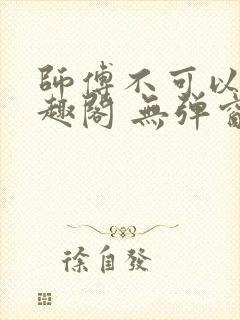 師傅不可以
趣閣 無彈窗
徐自發